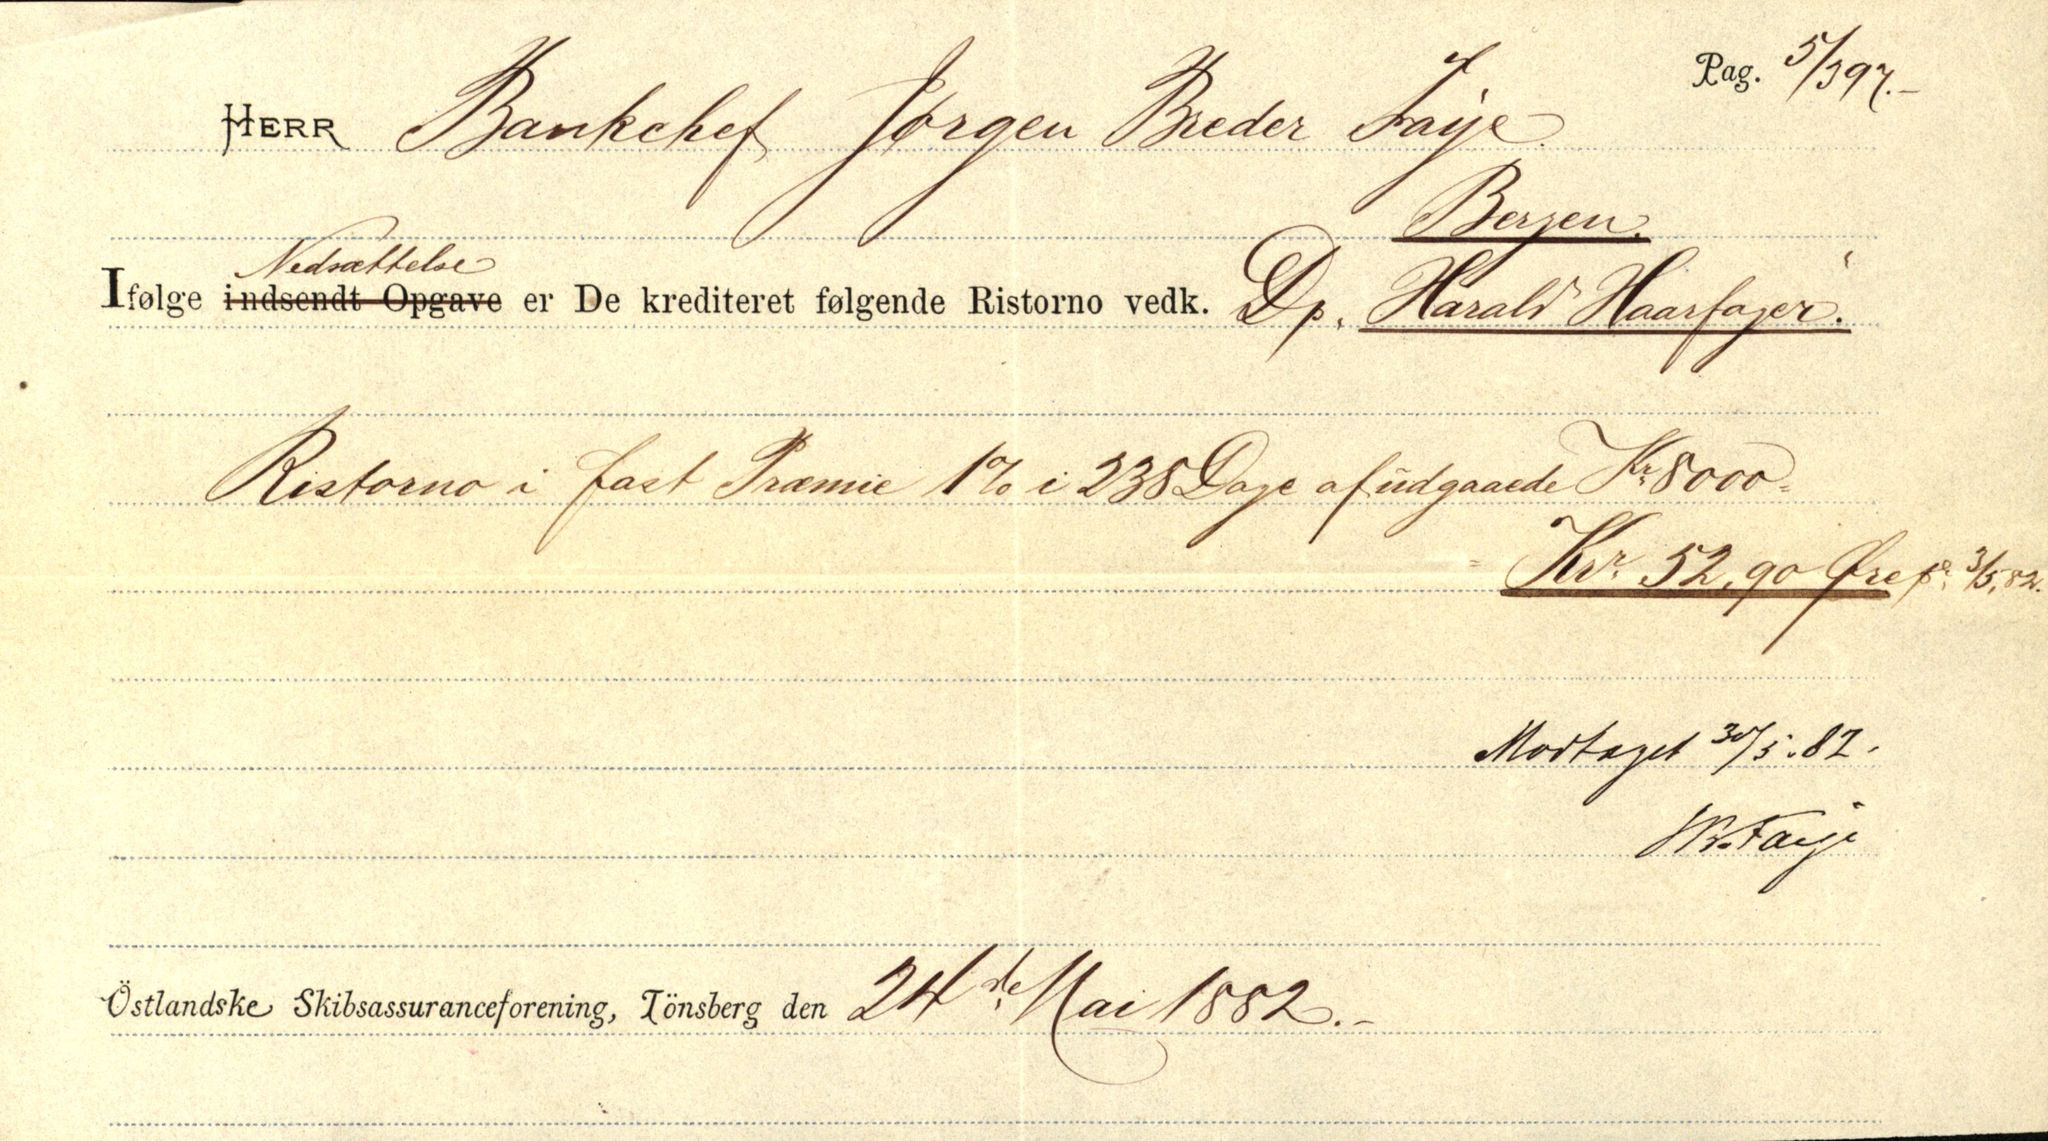 Pag. 5/397.-
HERR Bankchef Jørgen Breder Faye.
Bergen.
Nedsættelse
Ifølge indsendt Opgave er De krediteret følgende Ristorno vedk. Dp. "Harald Haarfager".
Ristorno i fast Præmie 1% i 238 Dage af udgaaede Kr 8000=
= Kr. 52,90 Øre pr. 3/5.82.
Modtaget 30/5.82.
Faye
Östlandske Skibsassuranceforening, Tönsberg den 24de Mai 1882.-